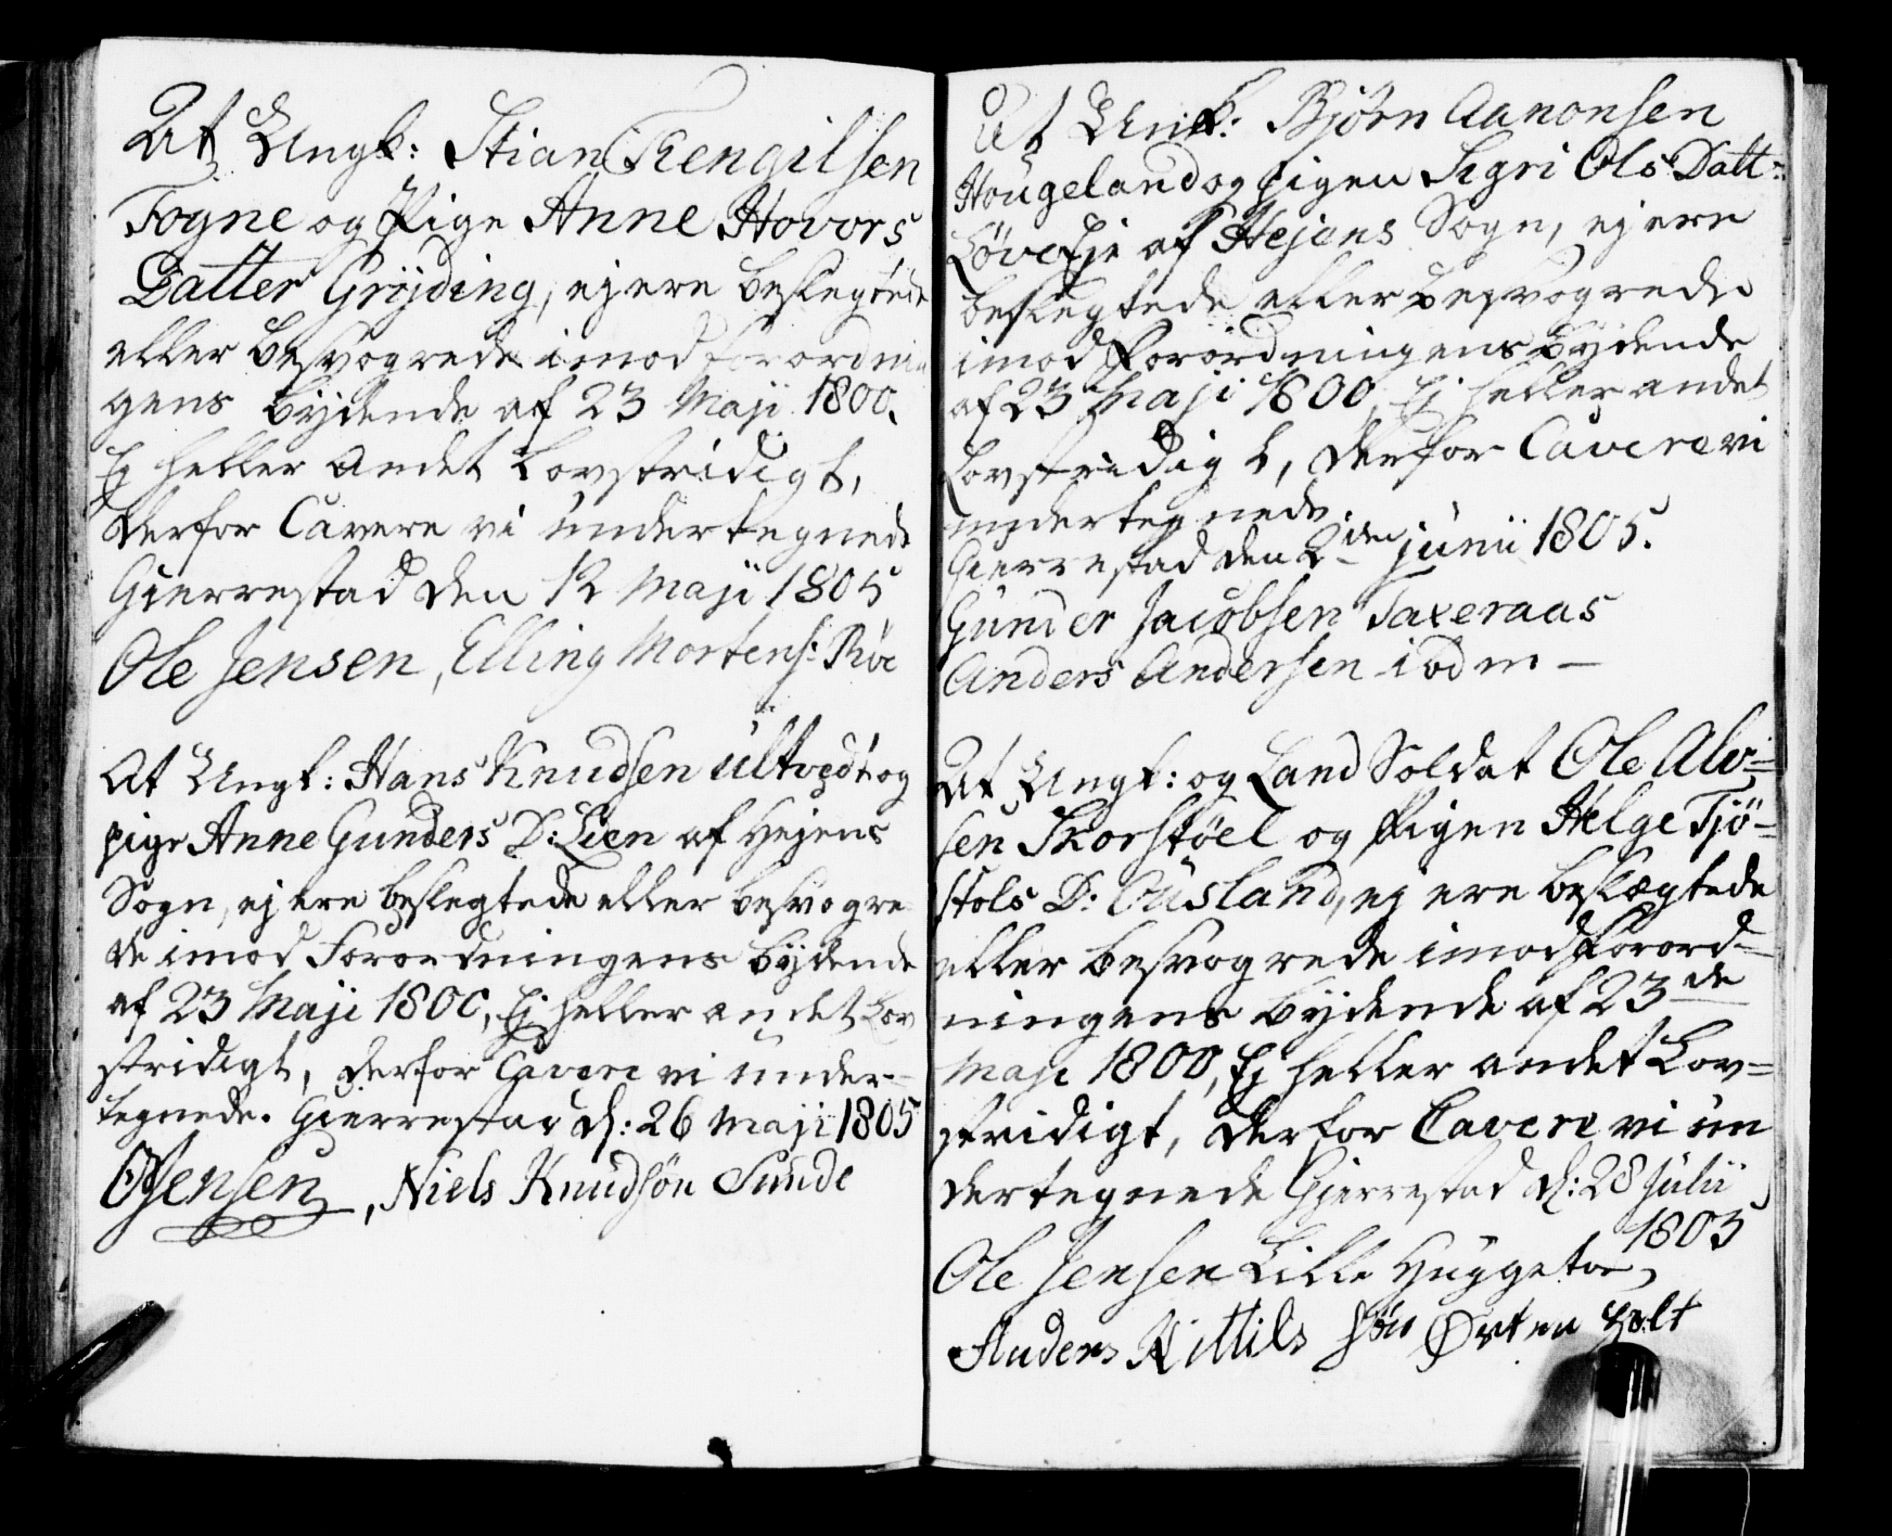 At Ungk: Stian Tengilsen
Fogne og Pige Anne Hovors
Datter Gryding, ej ere beslegtede
eller besvogrede imod forordnin
gens bydende af 23 Maji 1800.
Ej heller Andet Lovstridigt,
derfor Cavere vi undertegnede
Gierrestad den 12 Maji 1805
Ole Jensen, Elling Mortens: Röe
At Ungk: Hans Knudsen Ultvedt og
pige Anne Gunders D: Lien af Hejens
Sogn, ej ere beslegtede eller besvogre
de imod Forordningens bydende
af 23 Maji 1800, Ej heller andet Lov
stridigt, derfor Cavere vi under-
tegnede. Gierrestad d: 26 Maji 1805
OJensen, Niels Knudsön Sunde
At Unk: Björn Aanonsen
Hougeland og pigen Segri Ols Datt:
Löveeje af Hejens Sogn, ej ere
beslegtede eller besvogrede
imod Forordningens bydende
af 23 Maji 1800, Ej heller andet
Lovstridigt, derfor Cavere vi
undertegnede.
Gierrestad den 2den junii 1805.
Gunder Jacobsen Taxeraas
Anders Andersen ibdm —
At Ungk: og Land Soldat Ole Alv=
sen Skorstöel og Pigen Helge Tjö-
stols D: Ousland, ej ere beslægtede
eller besvogrede imod Forord-
ningens bydende af 23de
Maji 1800, Ej heller andet Lov=
stridigt, derfor Cavere vi un
dertegnede Gjerrestad d: 28 Julii
1805
Ole Jensen Lille
Anders Kittils sön Örten Holt